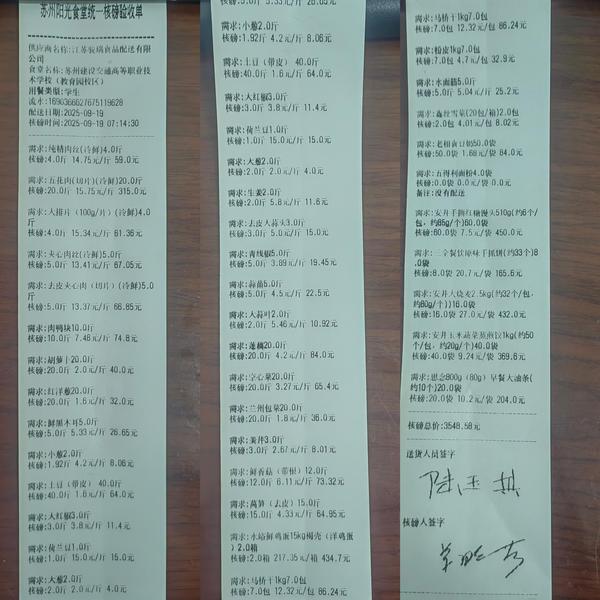 苏州阳光食堂统一核磅验收单
供应商名称:江苏骏瑞食品配送有限
公司
食堂名称:苏州建设交通高等职业技
术学校(教育园校区)
用餐类别:学生
流水:1690366627675119628
配送日期:2025-09-19
核磅时间:2025-09-19 07:14:30
需求:纯精肉丝(冷鲜)4.0斤
核磅:4.0斤 14.75元/斤 59.0元
需求:五花肉(切片)(冷鲜)20.0斤
核磅:20.0斤 15.75元/斤 315.0元
需求:大排片(100g/片)(冷鲜)4.0
斤
核磅:4.0斤 15.34元/斤 61.36元
需求:夹心肉丝(冷鲜)5.0斤
核磅:5.0斤 13.41元/斤 67.05元
需求:去皮夹心肉(切片)(冷鲜)5.0
斤
核磅:5.0斤 13.37元/斤 66.85元
需求:肉鸭块10.0斤
核磅:10.0斤 7.48元/斤 74.8元
需求:胡萝卜20.0斤
核磅:20.0斤 2.0元/斤 40.0元
需求:红洋葱20.0斤
核磅:20.0斤 1.6元/斤 32.0元
需求:鲜黑木耳5.0斤
核磅:5.0斤 5.33元/斤 26.65元
需求:小葱2.0斤
核磅:1.92斤 4.2元/斤 8.06元
需求:土豆(带皮) 40.0斤
核磅:40.0斤 1.6元/斤 64.0元
需求:大红椒3.0斤
核磅:3.0斤 3.8元/斤 11.4元
需求:荷兰豆1.0斤
核磅:1.0斤 15.0元/斤 15.0元
需求:大葱2.0斤
核磅:2.0斤 2.0元/斤 4.0元
核磅:5.0斤 5.33元/斤 26.65元
需求:小葱2.0斤
核磅:1.92斤 4.2元/斤 8.06元
需求:土豆(带皮) 40.0斤
核磅:40.0斤 1.6元/斤 64.0元
需求:大红椒3.0斤
核磅:3.0斤 3.8元/斤 11.4元
需求:荷兰豆1.0斤
核磅:1.0斤 15.0元/斤 15.0元
需求:大葱2.0斤
核磅:2.0斤 2.0元/斤 4.0元
需求:生姜2.0斤
核磅:2.0斤 5.8元/斤 11.6元
需求:去皮大蒜头3.0斤
核磅:3.0斤 5.0元/斤 15.0元
需求:青线椒5.0斤
核磅:5.0斤 3.89元/斤 19.45元
需求:蒜苗5.0斤
核磅:5.0斤 4.5元/斤 22.5元
需求:大蒜叶2.0斤
核磅:2.0斤 5.46元/斤 10.92元
需求:莲藕20.0斤
核磅:20.0斤 4.2元/斤 84.0元
需求:空心菜20.0斤
核磅:20.0斤 3.27元/斤 65.4元
需求:兰州包菜20.0斤
核磅:20.0斤 1.8元/斤 36.0元
需求:美芹3.0斤
核磅:3.0斤 2.67元/斤 8.01元
需求:鲜香菇(带根)12.0斤
核磅:12.0斤 6.11元/斤 73.32元
需求:莴笋(去皮)15.0斤
核磅:15.0斤 4.33元/斤 64.95元
需求:水站鲜鸡蛋15kg褐壳(洋鸡蛋
)2.0箱
核磅:2.0箱 217.35元/箱 434.7元
需求:马桥干1kg7.0包
核磅:7.0包 12.32元/包 86.24元
需求:马桥干1kg7.0包
核磅:7.0包 12.32元/包 86.24元
需求:粉皮1kg7.0包
核磅:7.0包 4.7元/包 32.9元
需求:水面筋5.0斤
核磅:5.0斤 5.04元/斤 25.2元
需求:鑫丝雪菜(20包/箱)2.0包
核磅:2.0包 4.01元/包 8.02元
需求:老相食豆奶50.0袋
核磅:50.0袋 1.68元/袋 84.0元
需求:五得利面粉4.0袋
核磅:0.0袋 0.0元/袋 0.0元
备注:没有配送
需求:安井手撕红糖馒头510g(约6个/
包,约85g/个)60.0袋
核磅:60.0袋 7.5元/袋 450.0元
需求:三全餐饮原味手抓饼(约33个)8
.0袋
核磅:8.0袋 20.7元/袋 165.6元
需求:安井大烧麦2.5kg(约32个/包,
约80g/个))16.0袋
核磅:16.0袋 27.0元/袋 432.0元
需求:安井玉米蔬菜蒸煎饺1kg(约50
个/包,约20g/个)40.0袋
核磅:40.0袋 9.24元/袋 369.6元
需求:思念800g(80g)早餐大油条(
约10个)20.0袋
核磅:20.0袋 10.2元/袋 204.0元
核磅总价:3548.58元
送货人员签字
核磅人签字